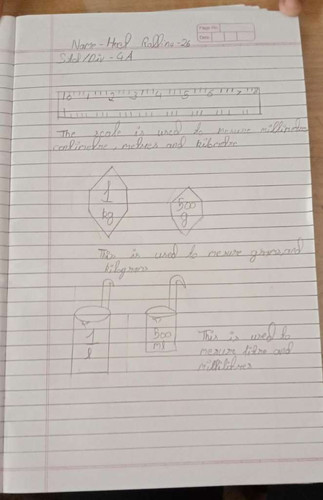 Page No.
Date
Name - Harsh Roll no - 26
Std/Div - 6 A
0 1 2 3 4 5 6 7
The scale is used to mesure millimetre
centimetre, metres and kilometre
1
kg
500
g
This is used to mesure grams and
kilograms
1
l
500
ml
This is used to
mesure litre and
millilitres